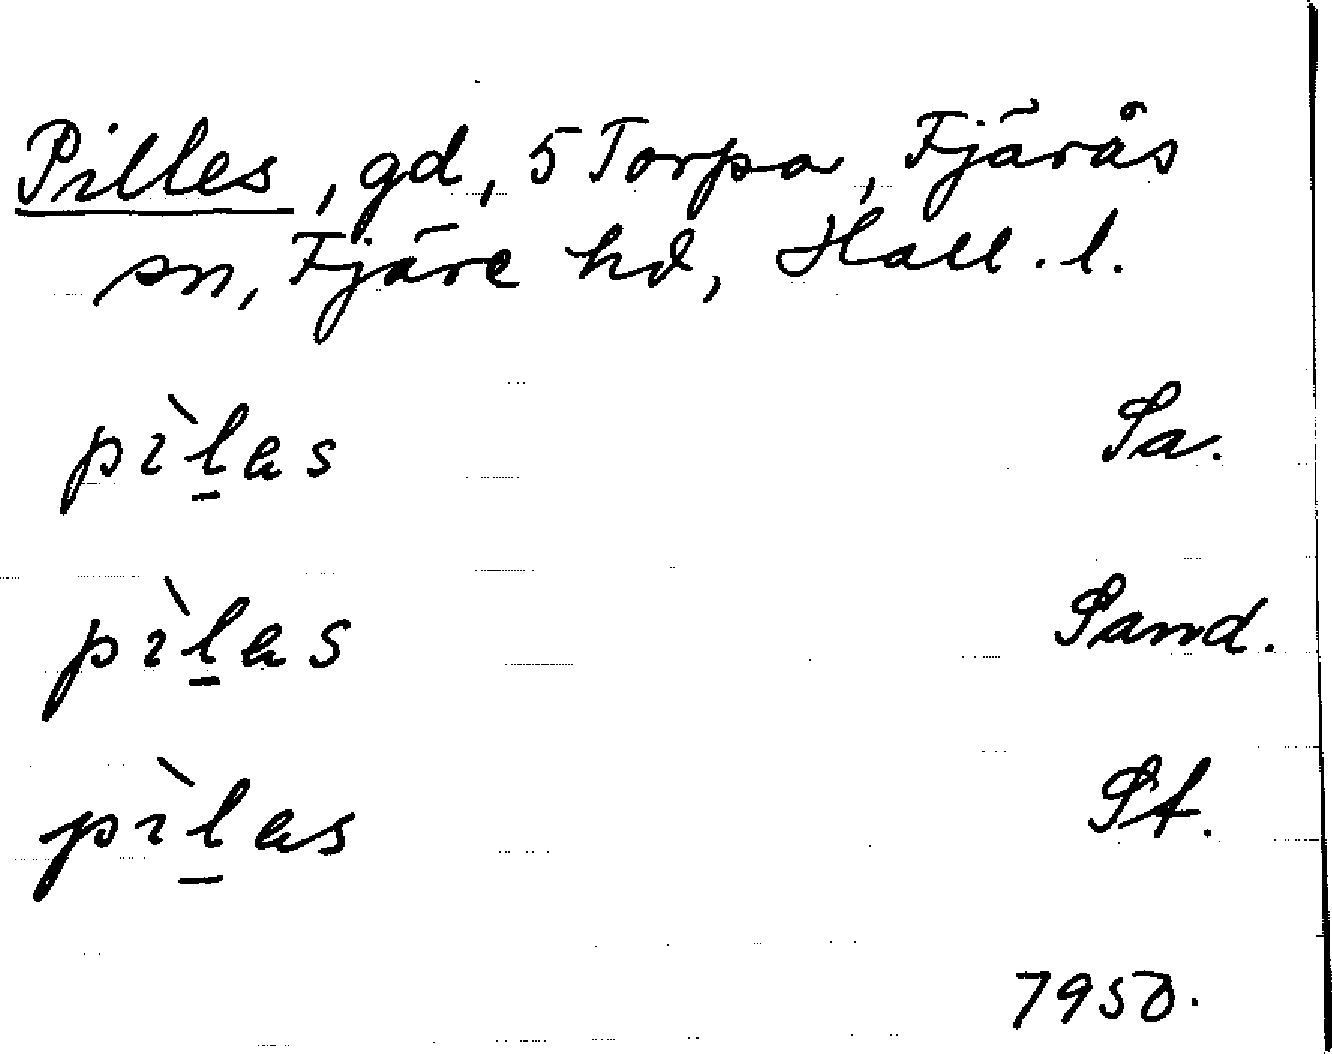 Pilles, gd, 5 Torpa, Fjärås
sn, Fjäre hd, Hall. l.
pìl̠as Sa.
pìl̠as Sand.
pìl̠as St.
7950.